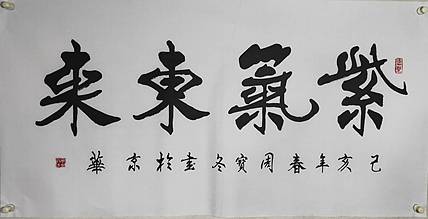 紫氣東来
己亥年春周寶冬書於京華